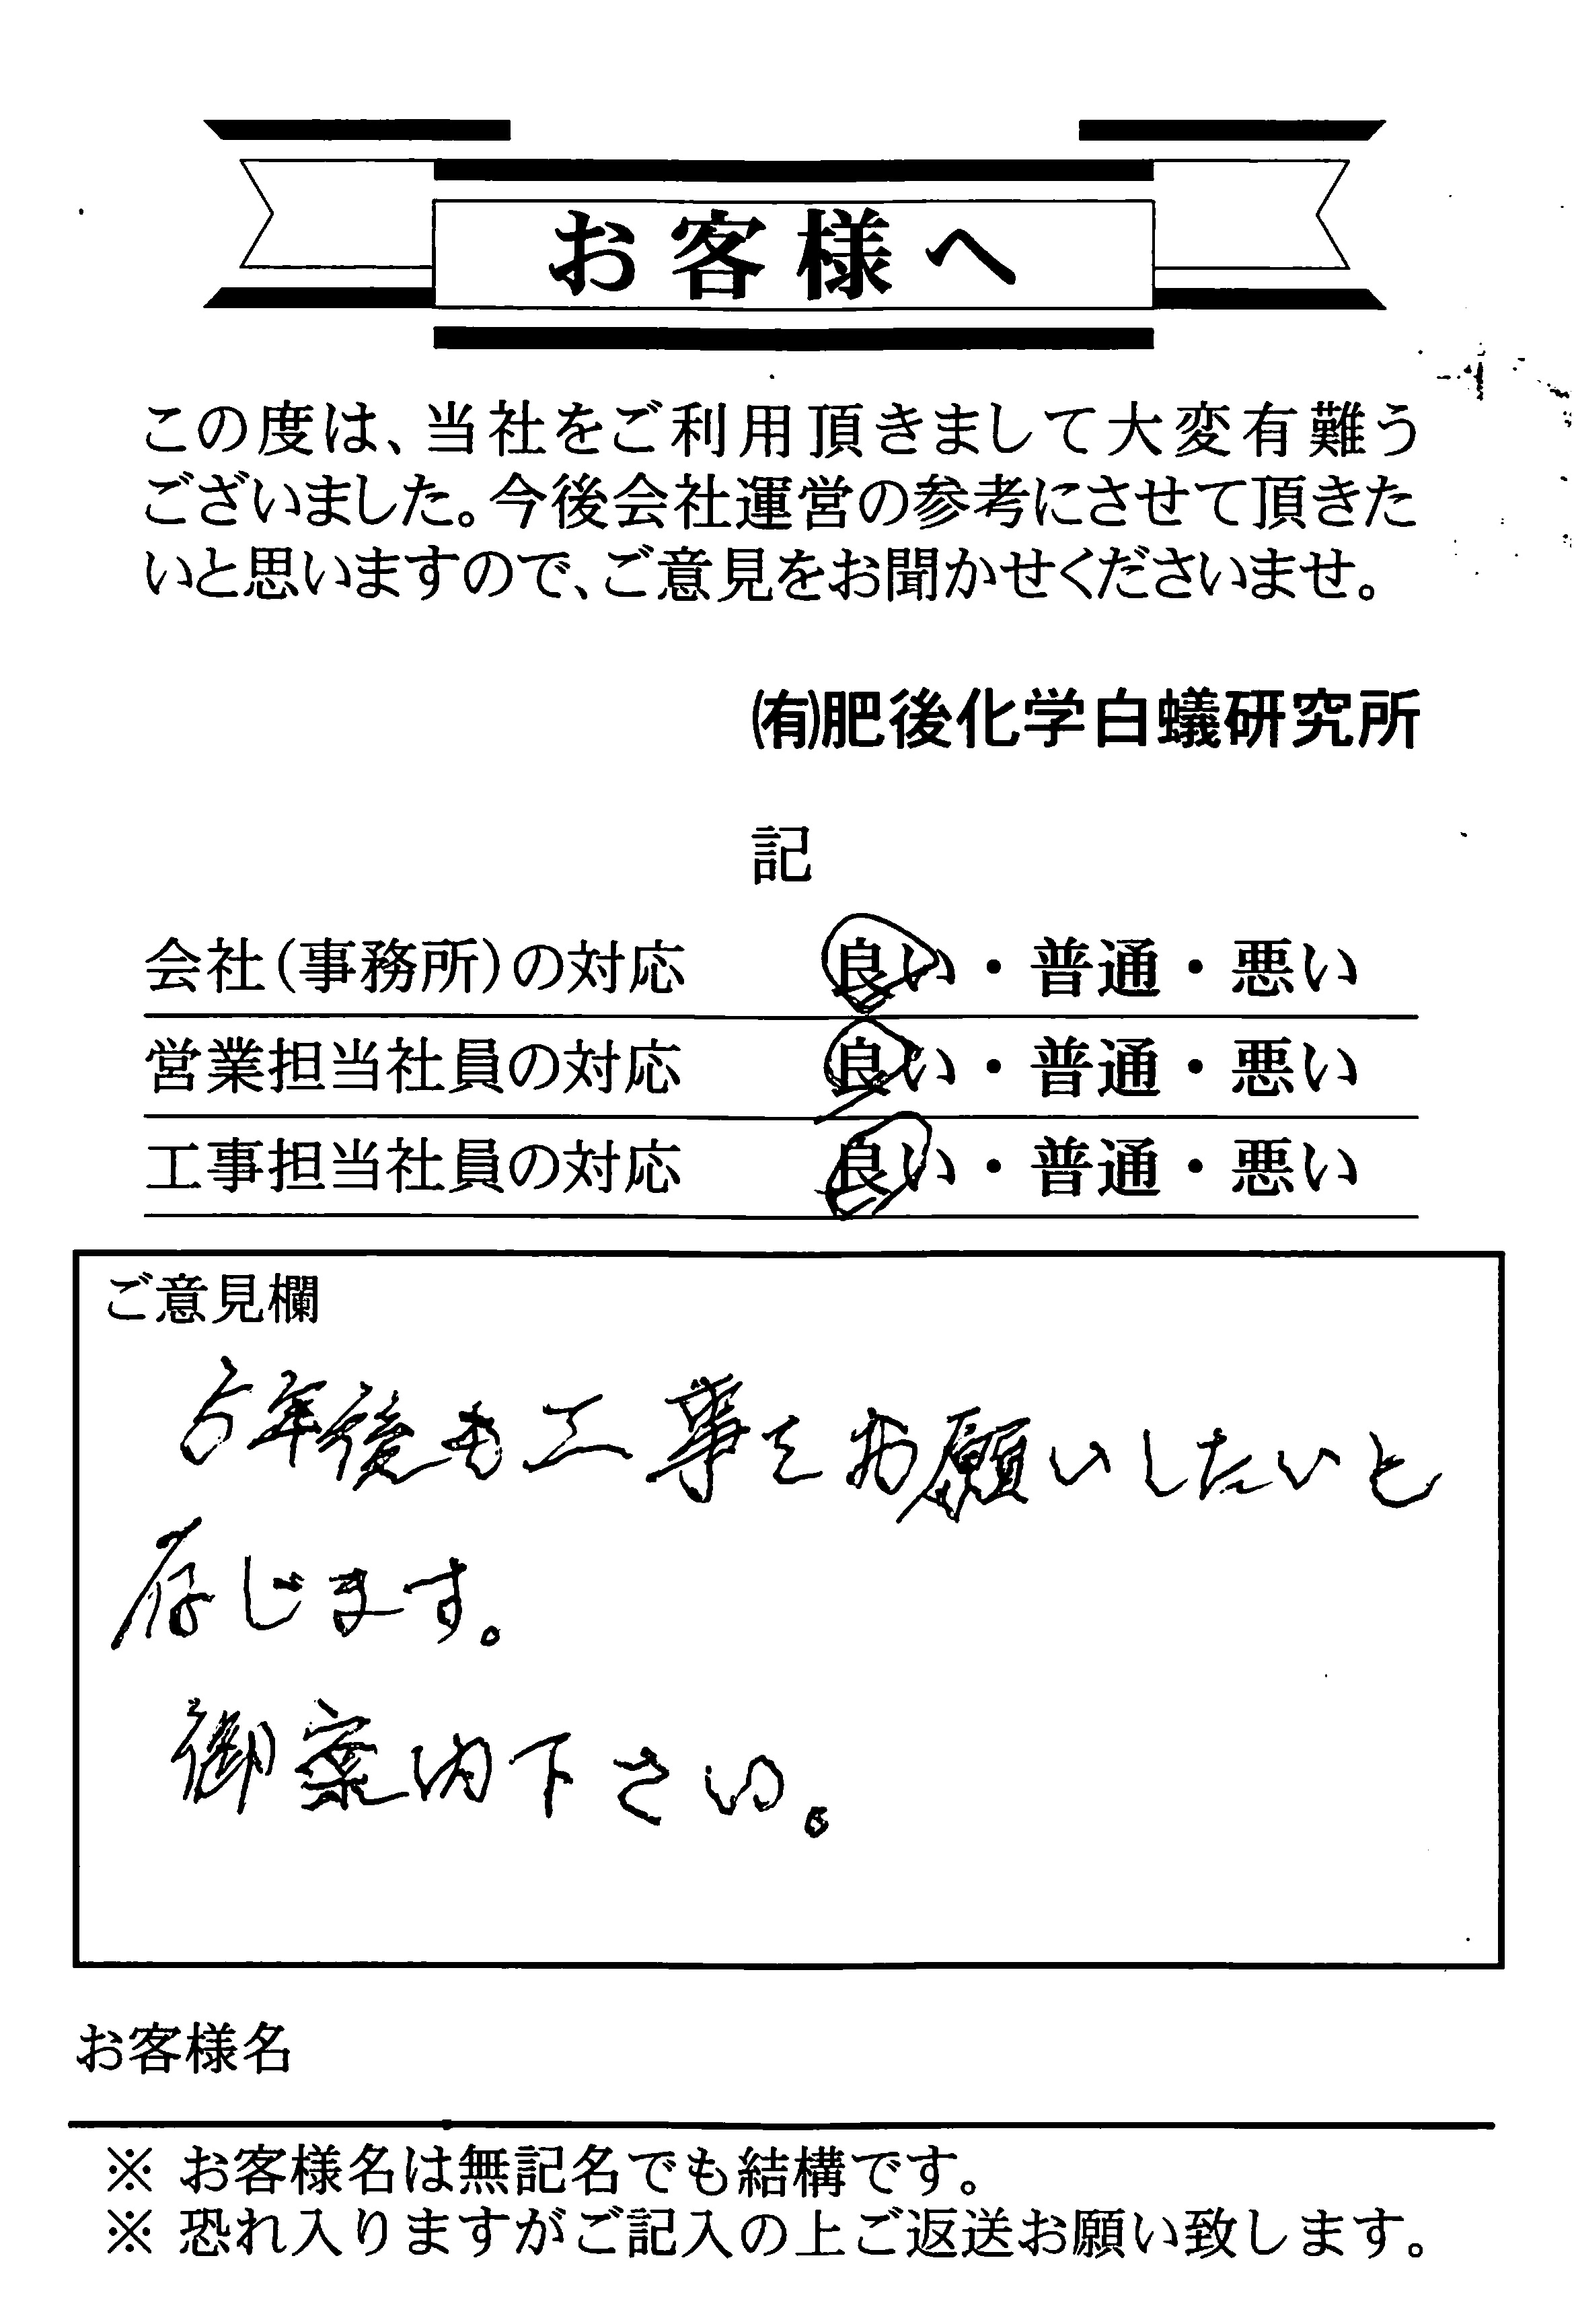 お客様へ
この度は、当社をご利用頂きまして大変有難う
ございました。今後会社運営の参考にさせて頂きた
いと思いますので、ご意見をお聞かせくださいませ。
㈲肥後化学白蟻研究所
記
会社(事務所)の対応 良い・普通・悪い
営業担当社員の対応 良い・普通・悪い
工事担当社員の対応 良い・普通・悪い
ご意見欄
5年後も工事をお願いしたいと
存じます。
御案内下さい。
お客様名
※ お客様名は無記名でも結構です。
※ 恐れ入りますがご記入の上ご返送お願い致します。